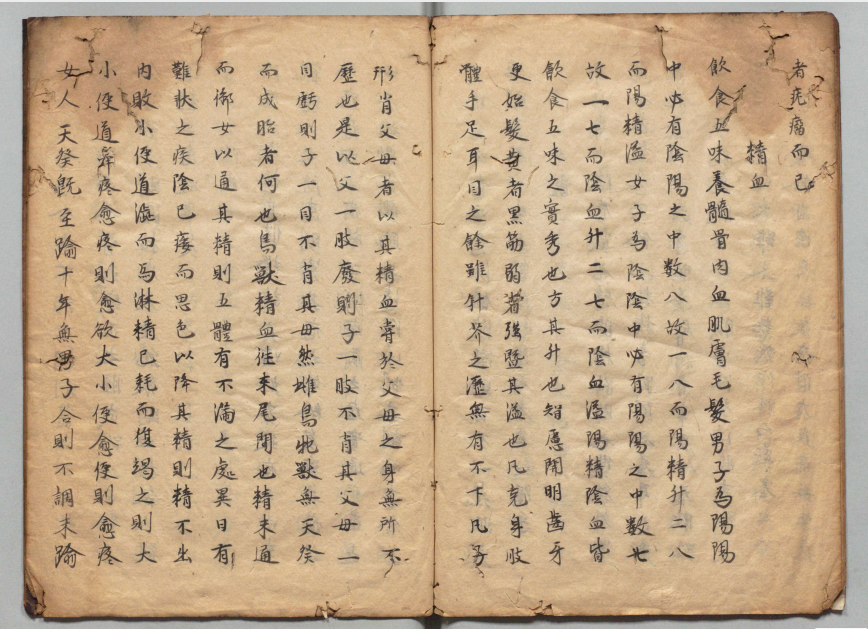 者疣瘤而已
精血
飲食五味養髓骨肉血肌膚毛髮男子為陽陽
中必有陰陰之中数八故一八而陽精升二八
而陽精溢女子為陰陰中必有陽陽之中数七
故一七而陰血升二七而陰血溢陽精陰血皆
飲食五味之實秀也方其升也智慮開明齒牙
更始髮黄者黒筋弱者強暨其溢也凡充身肢
體手足耳目之餘雖針芥之瀝無有不下凡子
形肖父母者以其精血甞於父母之身無所不
歴也是以父一肢廢則子一肢不肖其父母一
目虧則子一目不肖其母然雌鳥牝獸無天癸
而成胎者何也鳥獸精血往来尾閭也精未通
而御女以通其精則五體有不滿之處異日有
難狀之疾陰已痿而思色以降其精則精不出
内敗小便道澁而為淋精已耗而復竭之則大
小便道牽疼愈疼則愈欲大小便愈便則愈疼
女人天癸既至踰十年無男子合則不調未踰